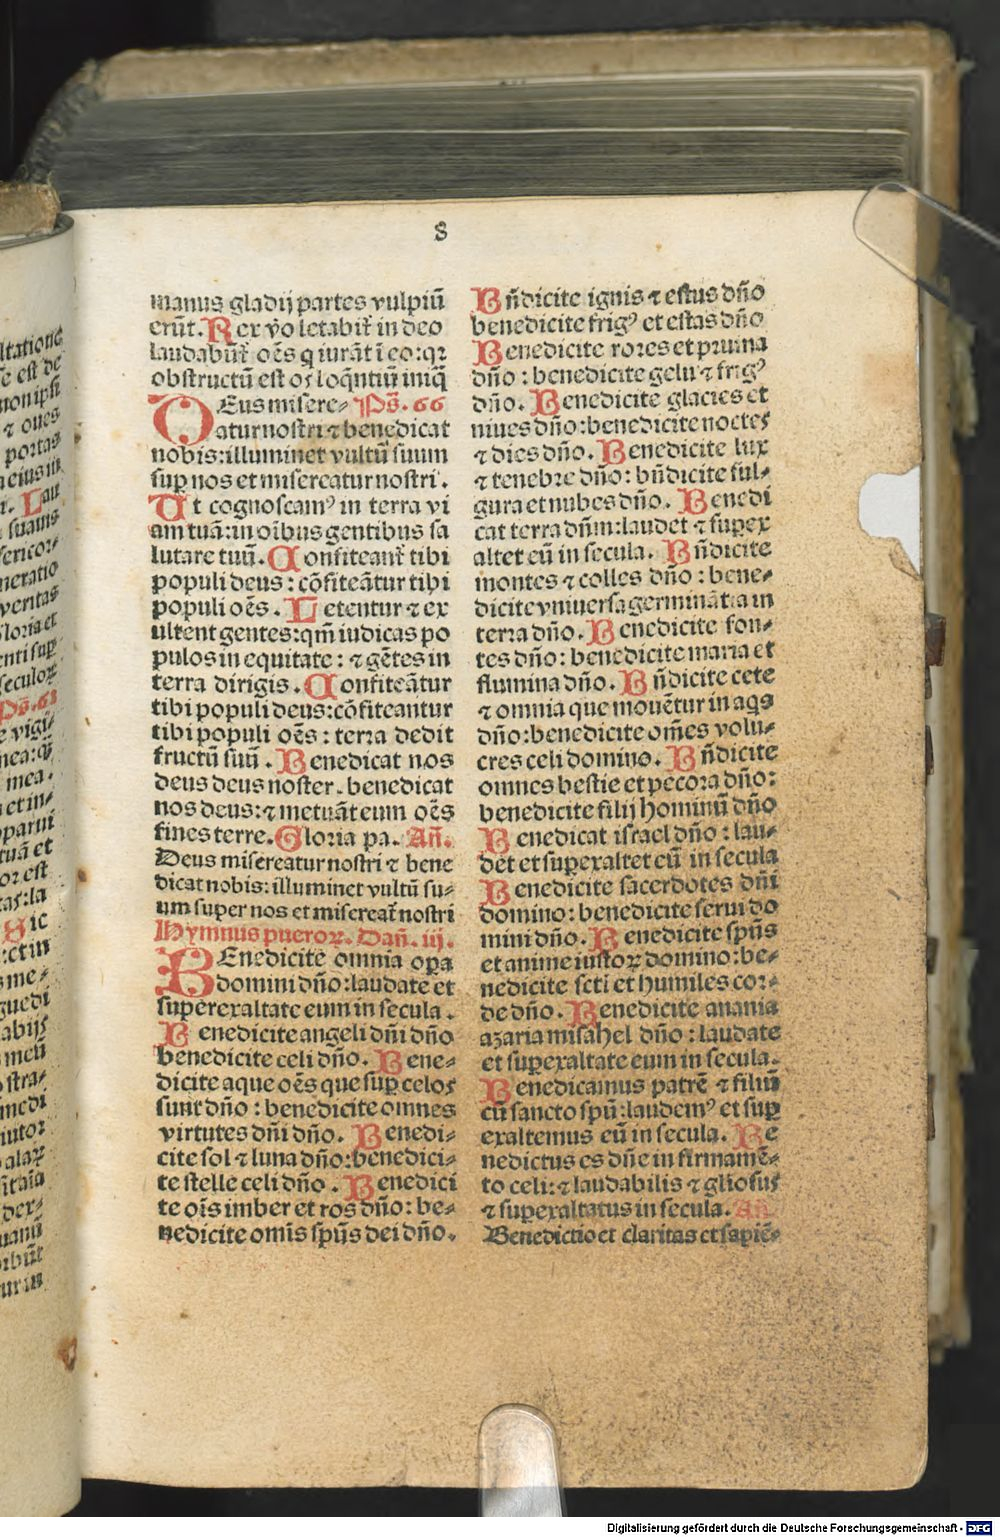 8
manus gladij partes vulpiū
erūt. Rex v̊o letabiť in deo
laudabūť oēs q iurāt ī eo: qꝛ
obstructū est os loq̄ntiū iniq̄
DEus misere⸗ Ps̄. 66
atur nostri ⁊ benedicat
nobis: illuminet vultū suum
suꝑ nos et misereatur nostri.
Ut cognoscamꝰ in terra vi
am tuā: in oībus gentibus sa
lutare tuū. Confiteanť tibi
populi deus: cōfiteātur tibi
populi oēs. Letentur ⁊ ex
ultent gentes: qm̄ iudicas po
pulos in equitate: ⁊ gētes in
terra dirigis. Confiteātur
tibi populi deus: cōfiteantur
tibi populi oēs: terra dedit
fructū suū. Benedicat nos
deus deus noster. benedicat
nos deus: ⁊ metuāt eum oēs
fines terre. Gloria pa. Añ.
Deus misereatur nostri ⁊ bene
dicat nobis: illuminet vultū su⸗
um super nos et misereať nostri
Hymnus pueroꝝ. Dañ. iij.
BEnedicite omnia oꝑa
domini dño: laudate et
superexaltate eum in secula.
Benedicite angeli dñi dño
benedicite celi dño. Bene⸗
dicite aque oēs que suꝑ celos
sunt dño: benedicite omnes
virtutes dñi dño. Benedi⸗
cite sol ⁊ luna dño: benedici⸗
te stelle celi dño. Benedici
te oīs imber et ros dño: be⸗
nedicite omīs spūs dei dño.
Bñdicite ignis ⁊ estus dño
benedicite frigꝰ et estas dño
Benedicite rores et pruina
dño: benedicite gelu ⁊ frigꝰ
dño. Benedicite glacies et
niues dño: benedicite noctes
⁊ dies dño. Benedicite lux
⁊ tenebre dño: bñdicite ful⸗
gura et nubes dño. Benedi
cat terra dñm: laudet ⁊ suꝑex
altet eū in secula. Bñdicite
montes ⁊ colles dño: bene⸗
dicite vniuersa germinātia in
terra dño. Benedicite fon⸗
tes dño: benedicite maria et
flumina dño. Bñdicite cete
⁊ omnia que mouētur in aqs
dño: benedicite om̄es volu⸗
cres celi domino. Bñdicite
omnes bestie et pecora dño:
benedicite filij hominū dño
Benedicat israel dño: lau⸗
det et suꝑexaltet eū in secula
Benedicite sacerdotes dñi
domino: benedicite serui do
mini dño. Benedicite spūs
et anime iustoꝝ domino: be⸗
nedicite scti et humiles cor⸗
de dño. Benedicite anania
azaria misahel dño: laudate
et suꝑexaltate eum in secula.
Benedicamus patrē ⁊ filiū
cū sancto spū: laudemꝰ et suꝑ
exaltemus eū in secula. Be
nedictus es dñe in firmamē⸗
to celi: ⁊ laudabilis ⁊ gliosus
⁊ suꝑexaltatus in secula. Añ
Benedictio et claritas et sapiē⸗
Digitalisierung gefördert durch die Deutsche Forschungsgemeinschaft - DFG